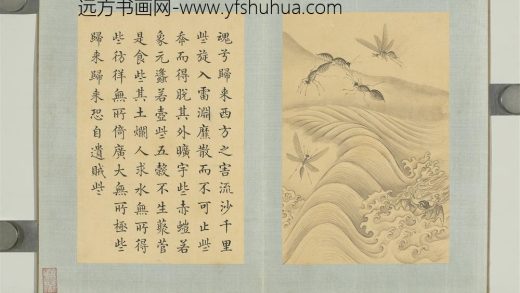 远方书画网-www.yfshuhua.com
魂兮歸來西方之害流沙千里
些旋入雷淵靡散而不可止些
幸而得脫其外曠宇些赤螘若
象元蠭若壺些五穀不生藂菅
是食些其土爛人求水無所得
些彷徉無所倚廣大無所極些
歸來歸來恐自遺賊些